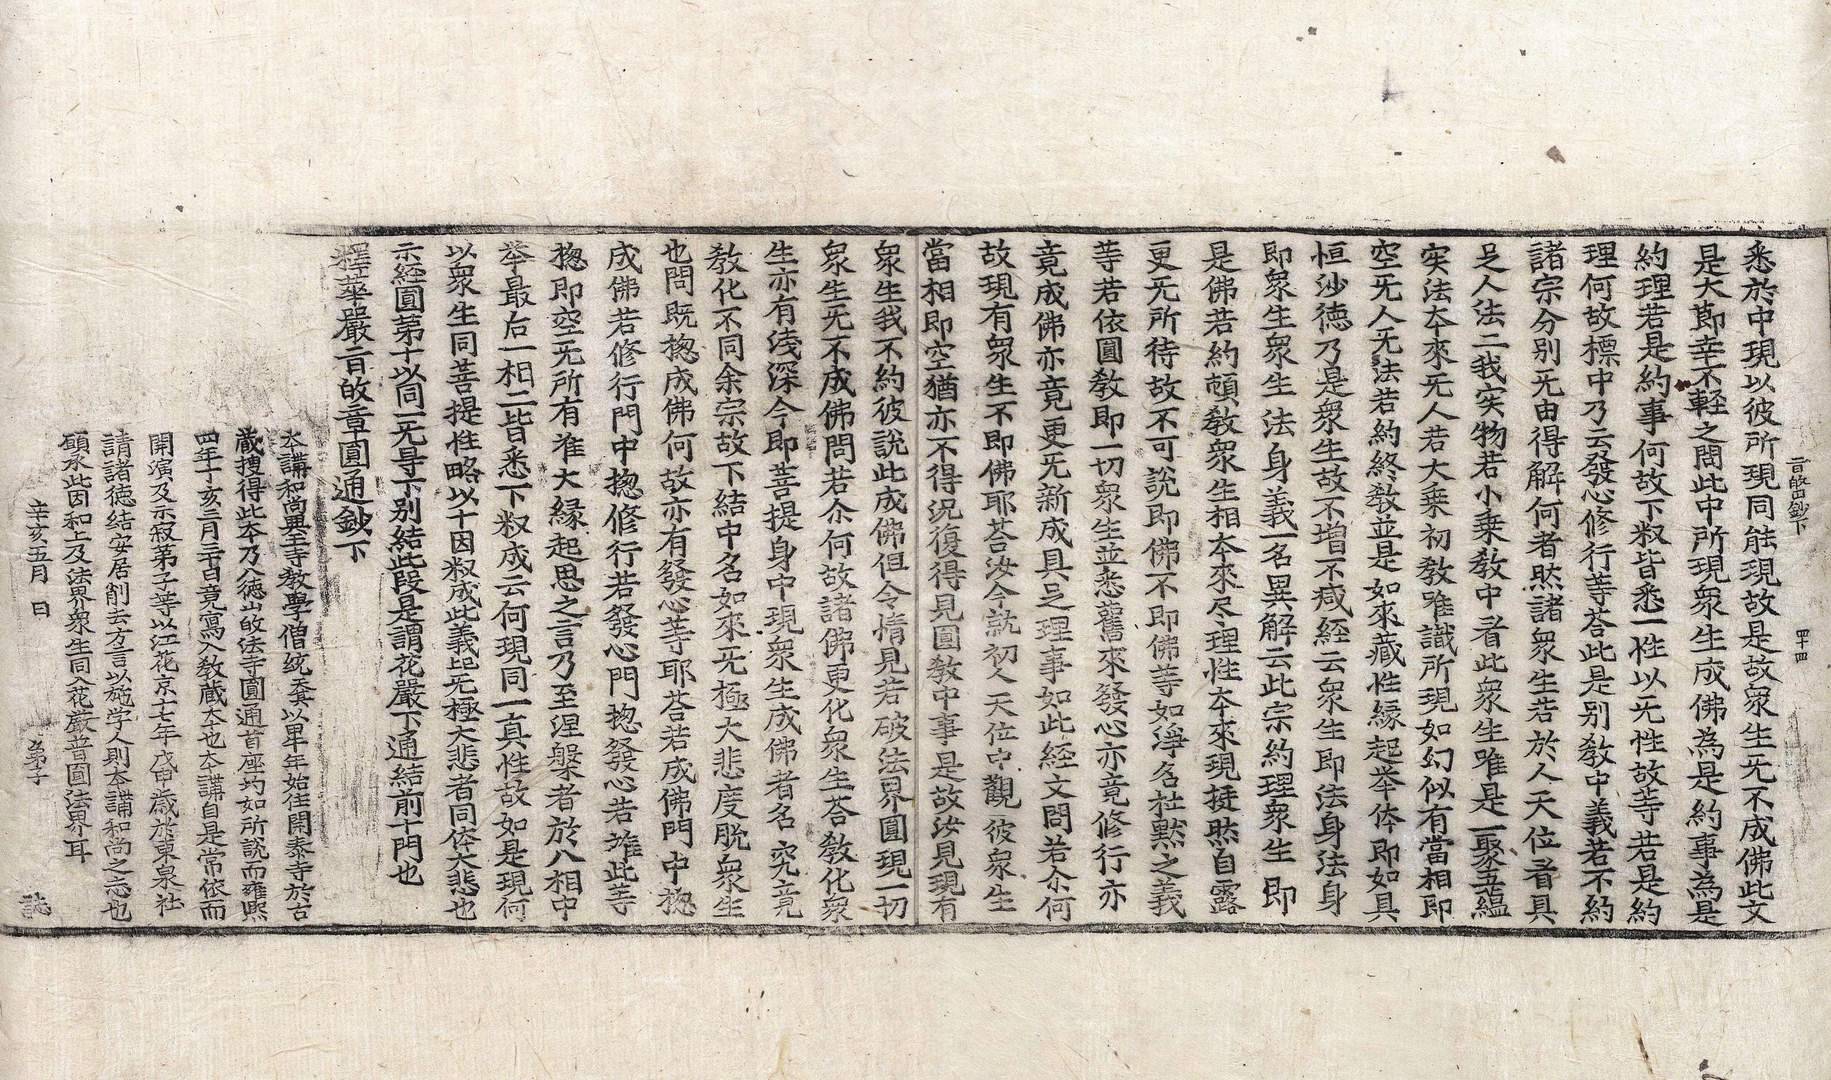 旨㱾鈔下　四十四
悉於中現以彼所現同能現故是故衆生无不成佛此文
是大節幸不輕之問此中所現衆生成佛為是約事為是
約理若是約事何故下㪅皆悉一性以无性故等若是約
理何故標中乃云發心修行等荅此是別敎中義若不約
諸宗分別无由得解何者㷊諸衆生若於人天位㸔具
足人法二我实物若小乘敎中㸔此衆生唯是一聚五蘊
实法夲來无人若大乘初敎唯識所現如幻似有當相即
空无人无法若約終敎並是如來藏性緣起举体即如具
恒沙徳乃是衆生故不增不减経云衆生即法身法身
即衆生衆生法身義一名異解云此宗約理衆生即
是佛若約頓敎衆生相夲來尽理性夲來現挺㷊自露
更无所待故不可說即佛不即佛等如淨名杜黙之義
等若依圓敎即一切衆生並悉舊來發心亦竟修行亦
竟成佛亦竟更无新成具足理事如此經文問若尒何
故現有衆生不即佛耶荅汝今就初人天位中觀彼衆生
當相即空猶亦不得况復得見圓敎中事是故汝見現有
衆生我不約彼說此成佛但令情見若破法界圓現一切
衆生无不成佛問若尒何故諸佛更化衆生荅敎化衆
生亦有淺深今即菩提身中現衆生成佛者名究竟
敎化不同余宗故下結中名如來无極大悲度脫衆生
也問既揔成佛何故亦有發心等耶荅若成佛門中揔
成佛若修行門中揔修行若發心門揔發心若離此等
揔即空无所有准大縁起思之言乃至涅槃者於八相中
举最后一相二皆悉下㪅成云何現同一真性故如是現何
以衆生同菩提性略以十因㪅成此義起无極大悲者同体大悲也
示経圓第十以同一无㝵下別結此段是謂花嚴下通結前十門也
釋華嚴旨㱾章圓通鈔下
夲講和尚興王寺敎學僧統天其以早年始住開泰寺於古
藏搜得此夲乃八徳山㱾法寺圓通首座均如所說而雍熙
四年丁亥三月三十日竟寫入敎藏夲也夲講自是常依而
開演及示寂弟子等以江花京十七年戊申歲於東泉社
請諸徳結安居削去方言以施学人則夲講和尚之志也
願承此因和上及法界衆生同入花嚴普圓法界耳
辛亥五月　日　弟子　誌